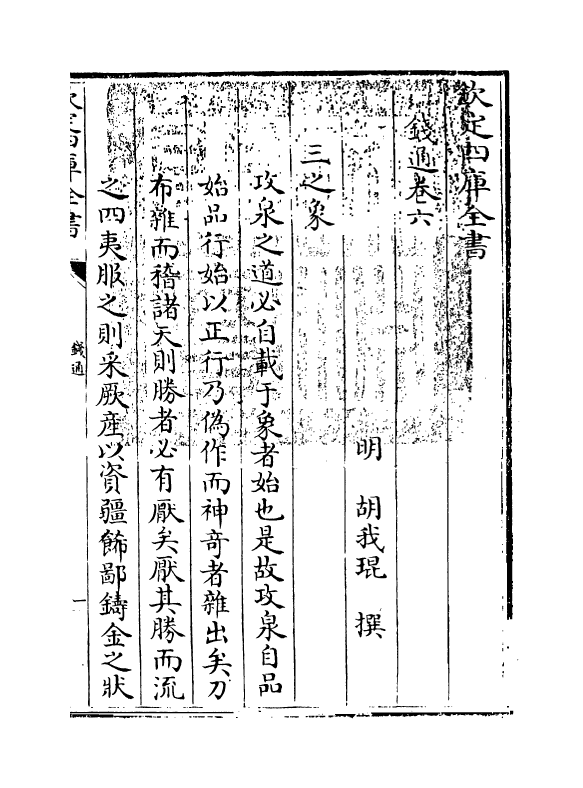 欽定四庫全書
錢通卷六
明 胡我琨 撰
三之象
攻泉之道必自載于象者始也是故攻泉自品
始品行始以正行乃偽作而神奇者雜出矣刀
布雜而稽諸天則勝者必有厭矣厭其勝而流
之四夷服之則采厥産以資疆飾鄙鑄金之狀
欽定四庫全書
錢通
一